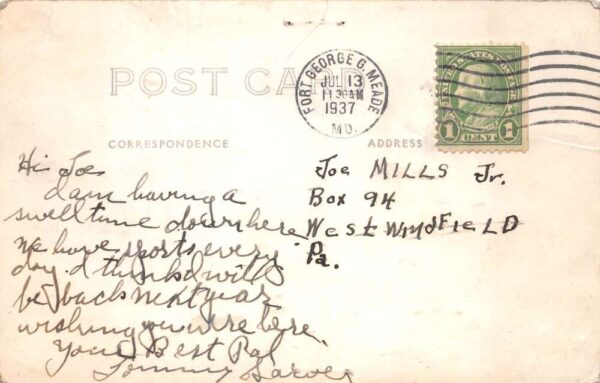 POST CARD
FORT GEORGE G. MEADE
JUL 13
11 30 AM
1937
MD.
UNITED STATES POSTAGE
1 CENT 1
CORRESPONDENCE
ADDRESS
Hi Joe
I am having a
swell time down here
we have sports every
day. I think I will
be back next year
wishing you were here.
Your Best Pal
Tommy
Joe MILLS Jr.
Box 94
West WINDFIELD
Pa.